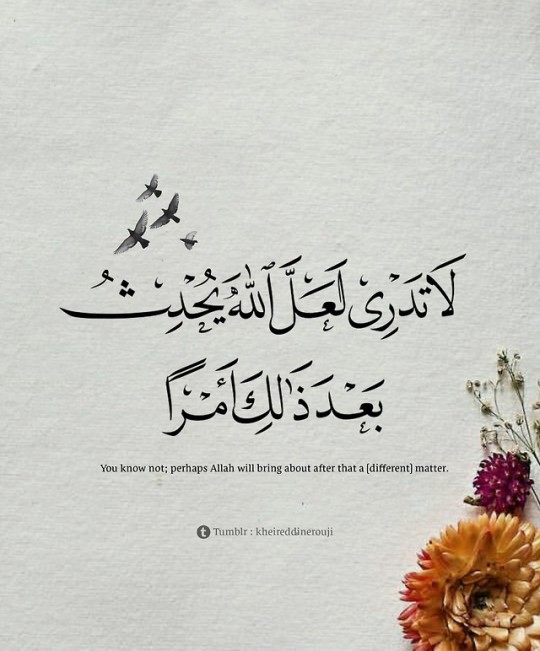 لَا تَدْرِى لَعَلَّ ٱللَّهَ يُحْدِثُ
بَعْدَ ذَٰلِكَ أَمْرًا
You know not; perhaps Allah will bring about after that a [different] matter.
t Tumblr : kheireddinerouji